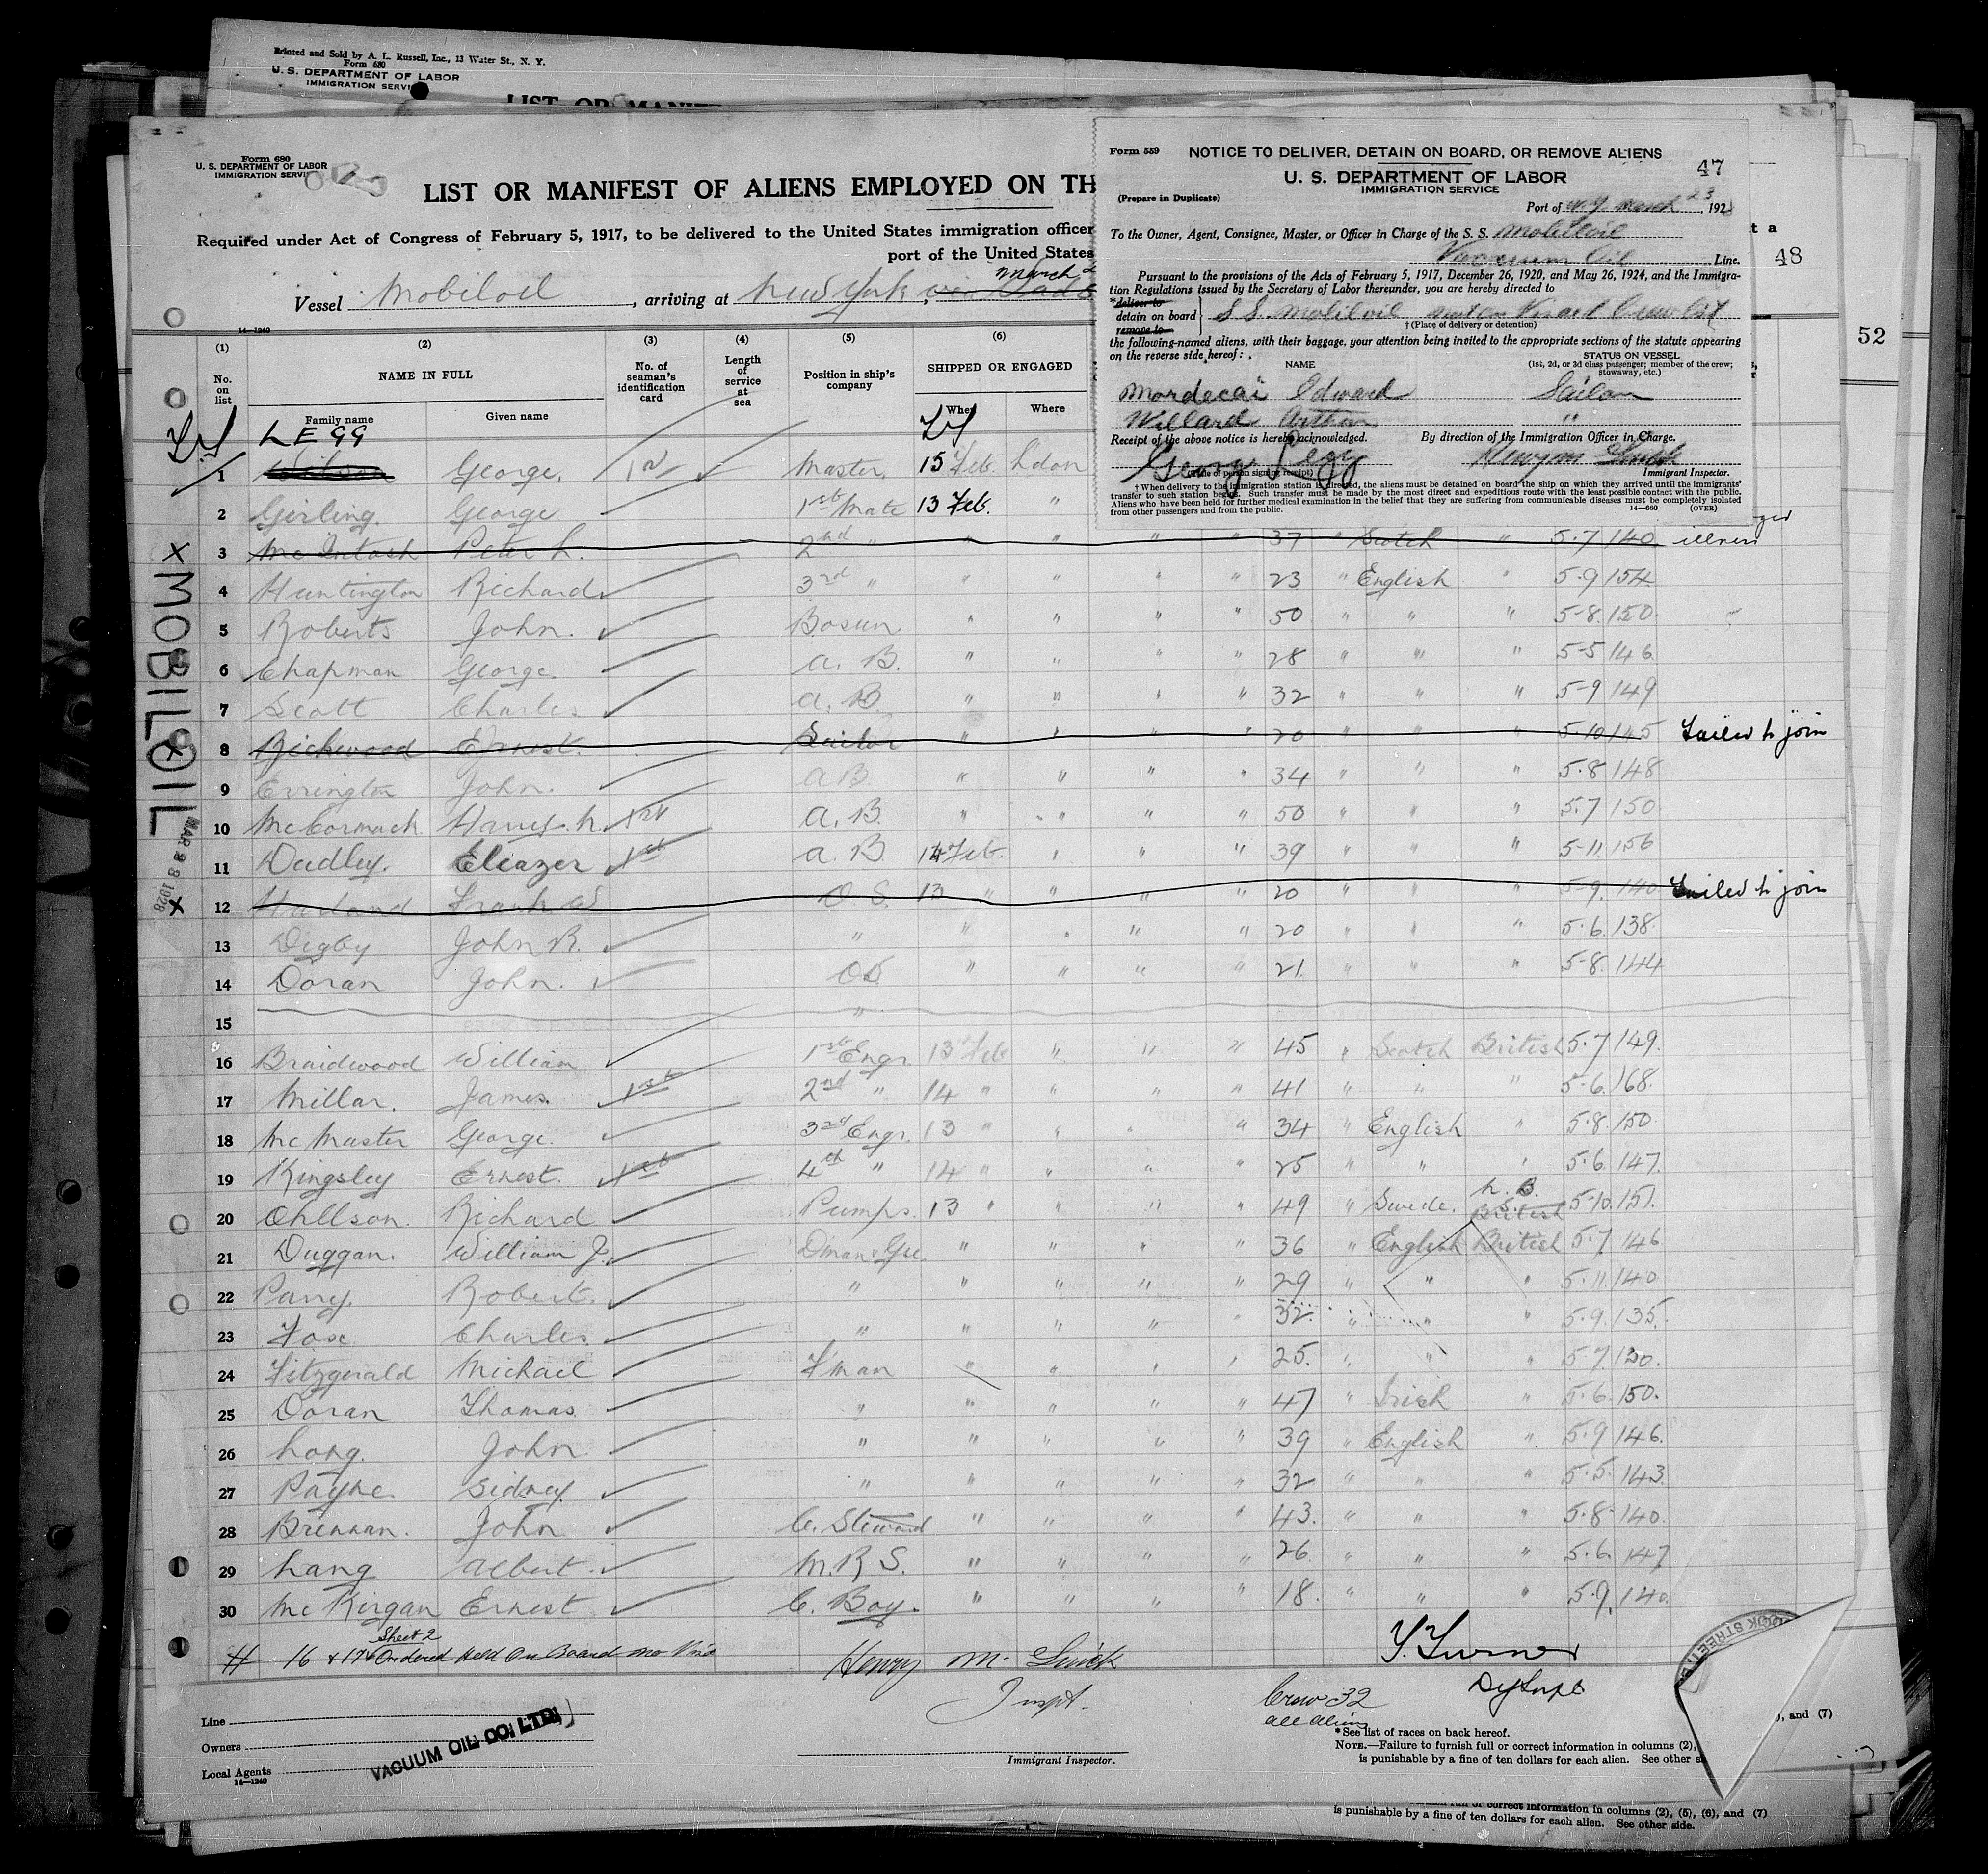 Printed and Sold by A. L. Russell, Inc., 13 Water St., N. Y.
Form 680
U. S. DEPARTMENT OF LABOR
IMMIGRATION SERVICE
Form 680
U. S. DEPARTMENT OF LABOR
IMMIGRATION SERVICE
LIST OR MANIFEST OF ALIENS EMPLOYED ON TH
Required under Act of Congress of February 5, 1917, to be delivered to the United States immigration officer
port of the United States
Vessel Mobiloil, arriving at New York March
14—1240
(1) (2) (3) (4) (5) (6)
No. on list NAME IN FULL No. of seaman's identification card Length of service at sea Position in ship's company SHIPPED OR ENGAGED
Family name Given name When Where
LEGG
1 George. Master 15 Feb. Ldon
2 Girling. George 1st Mate 13 Feb. "
3 McIntosh Peter L. 2nd " " " " " 37 " Scotch " 5-7 140 illness
4 Huntington Richard 3rd " " " " " 23 " English " 5-9 154
5 Roberts John. Bosun " " " " 50 " " " 5-8. 150.
6 Chapman George. A. B. " " " " 28 " " " 5-5 146
7 Scott Charles A. B. " " " " 32 " " " 5-9 149
8 Ernest. Sailor " " " " 20 " " " 5-10 145 Failed to join
9 Errington John. A B. " " " " 34 " " " 5-8 148
10 McCormack A. B. " " " " 50 " " " 5-7 150
11 Dudley. Eliazer 1st A. B. 14 Feb. " " " 39 " " " 5-11 156
12 Harland Frank W O. S. 13 " " " " 20 " " " 5-9. 140 Failed to join
13 Digby John R. " " " " " 20 " " " 5-6. 138.
14 Doran John. O.S. " " " " 21. " " " 5-8. 144
15 "
16 Braidwood William 1st Engr. 13 Feb " " " 45 " Scotch British 5-7 149.
17 Millar. James. 1st 2nd " 14 " " " " 41 " " " 5-6. 168.
18 McMaster George. 3rd Engr. 13 " " " " 34 " English " 5-8. 150.
19 Kingsley Ernest. 1st 4th " 14 " " " " 25 " " " 5-6. 147.
20 Ohllson. Richard Pumps. 13 " " " " 49 " Swede. British 5-10. 151.
21 Duggan. William J. " " " " 36 " English British 5-7. 146
22 Robert. " " " " " 29 " " " 5-11. 140
23 Charles. " " " " " 32. " " " 5-9. 135.
24 Fitzgerald Michael F'man " " " " 25. " " " 5-7 130.
25 Doran Thomas " " " " " 47 " Irish " 5-6. 150.
26 Long. John " " " " " 39 " English " 5-9 146.
27 Payne Sidney. " " " " " 32 " " " 5-5. 143.
28 Brennan. John C. Steward " " " " 43. " " " 5-8. 140.
29 Lang Albert. M. R. S. " " " " 26 " " " 5-6. 147
30 McKirgan Ernest C. Boy. " " " " 18. " " " 5-9. 140.
Sheet 2
# 16 + 17 Ordered Held On Board
Henry M.
Inspt.
Crew 32
all aliens
Line
Owners VACUUM OIL CO. LTD.
Local Agents
14—1240
Immigrant Inspector.
*See list of races on back hereof.
NOTE.—Failure to furnish full or correct information in columns (2),
is punishable by a fine of ten dollars for each alien. See other s
), and (7)
or correct information in columns (2), (5), (6), and (7)
is punishable by a fine of ten dollars for each alien. See other side.
X MOBILOIL X
MAR 23 1928
Form 559
NOTICE TO DELIVER, DETAIN ON BOARD, OR REMOVE ALIENS
47
U. S. DEPARTMENT OF LABOR
IMMIGRATION SERVICE
(Prepare in Duplicate)
Port of N.Y. March 23, 1928
To the Owner, Agent, Consignee, Master, or Officer in Charge of the S. S. Mobiloil
Vacuum Oil Line.
Pursuant to the provisions of the Acts of February 5, 1917, December 26, 1920, and May 26, 1924, and the Immigra-
tion Regulations issued by the Secretary of Labor thereunder, you are hereby directed to
*deliver to
detain on board S S. Mobiloil
remove to
†(Place of delivery or detention)
the following-named aliens, with their baggage, your attention being invited to the appropriate sections of the statute appearing
on the reverse side hereof:
NAME STATUS ON VESSEL
(1st, 2d, or 3d class passenger; member of the crew; stowaway, etc.)
Mordecai Edward Sailor
Willard Arthur "
Receipt of the above notice is hereby acknowledged. By direction of the Immigration Officer in Charge.
George Legg
(Title of person signing receipt) Immigrant Inspector.
†When delivery to the immigration station is directed, the aliens must be detained on board the ship on which they arrived until the immigrants'
transfer to such station begins. Such transfer must be made by the most direct and expeditious route with the least possible contact with the public.
Aliens who have been held for further medical examination in the belief that they are suffering from communicable diseases must be completely isolated
from other passengers and from the public.
14—660 (OVER)
t a
48
52